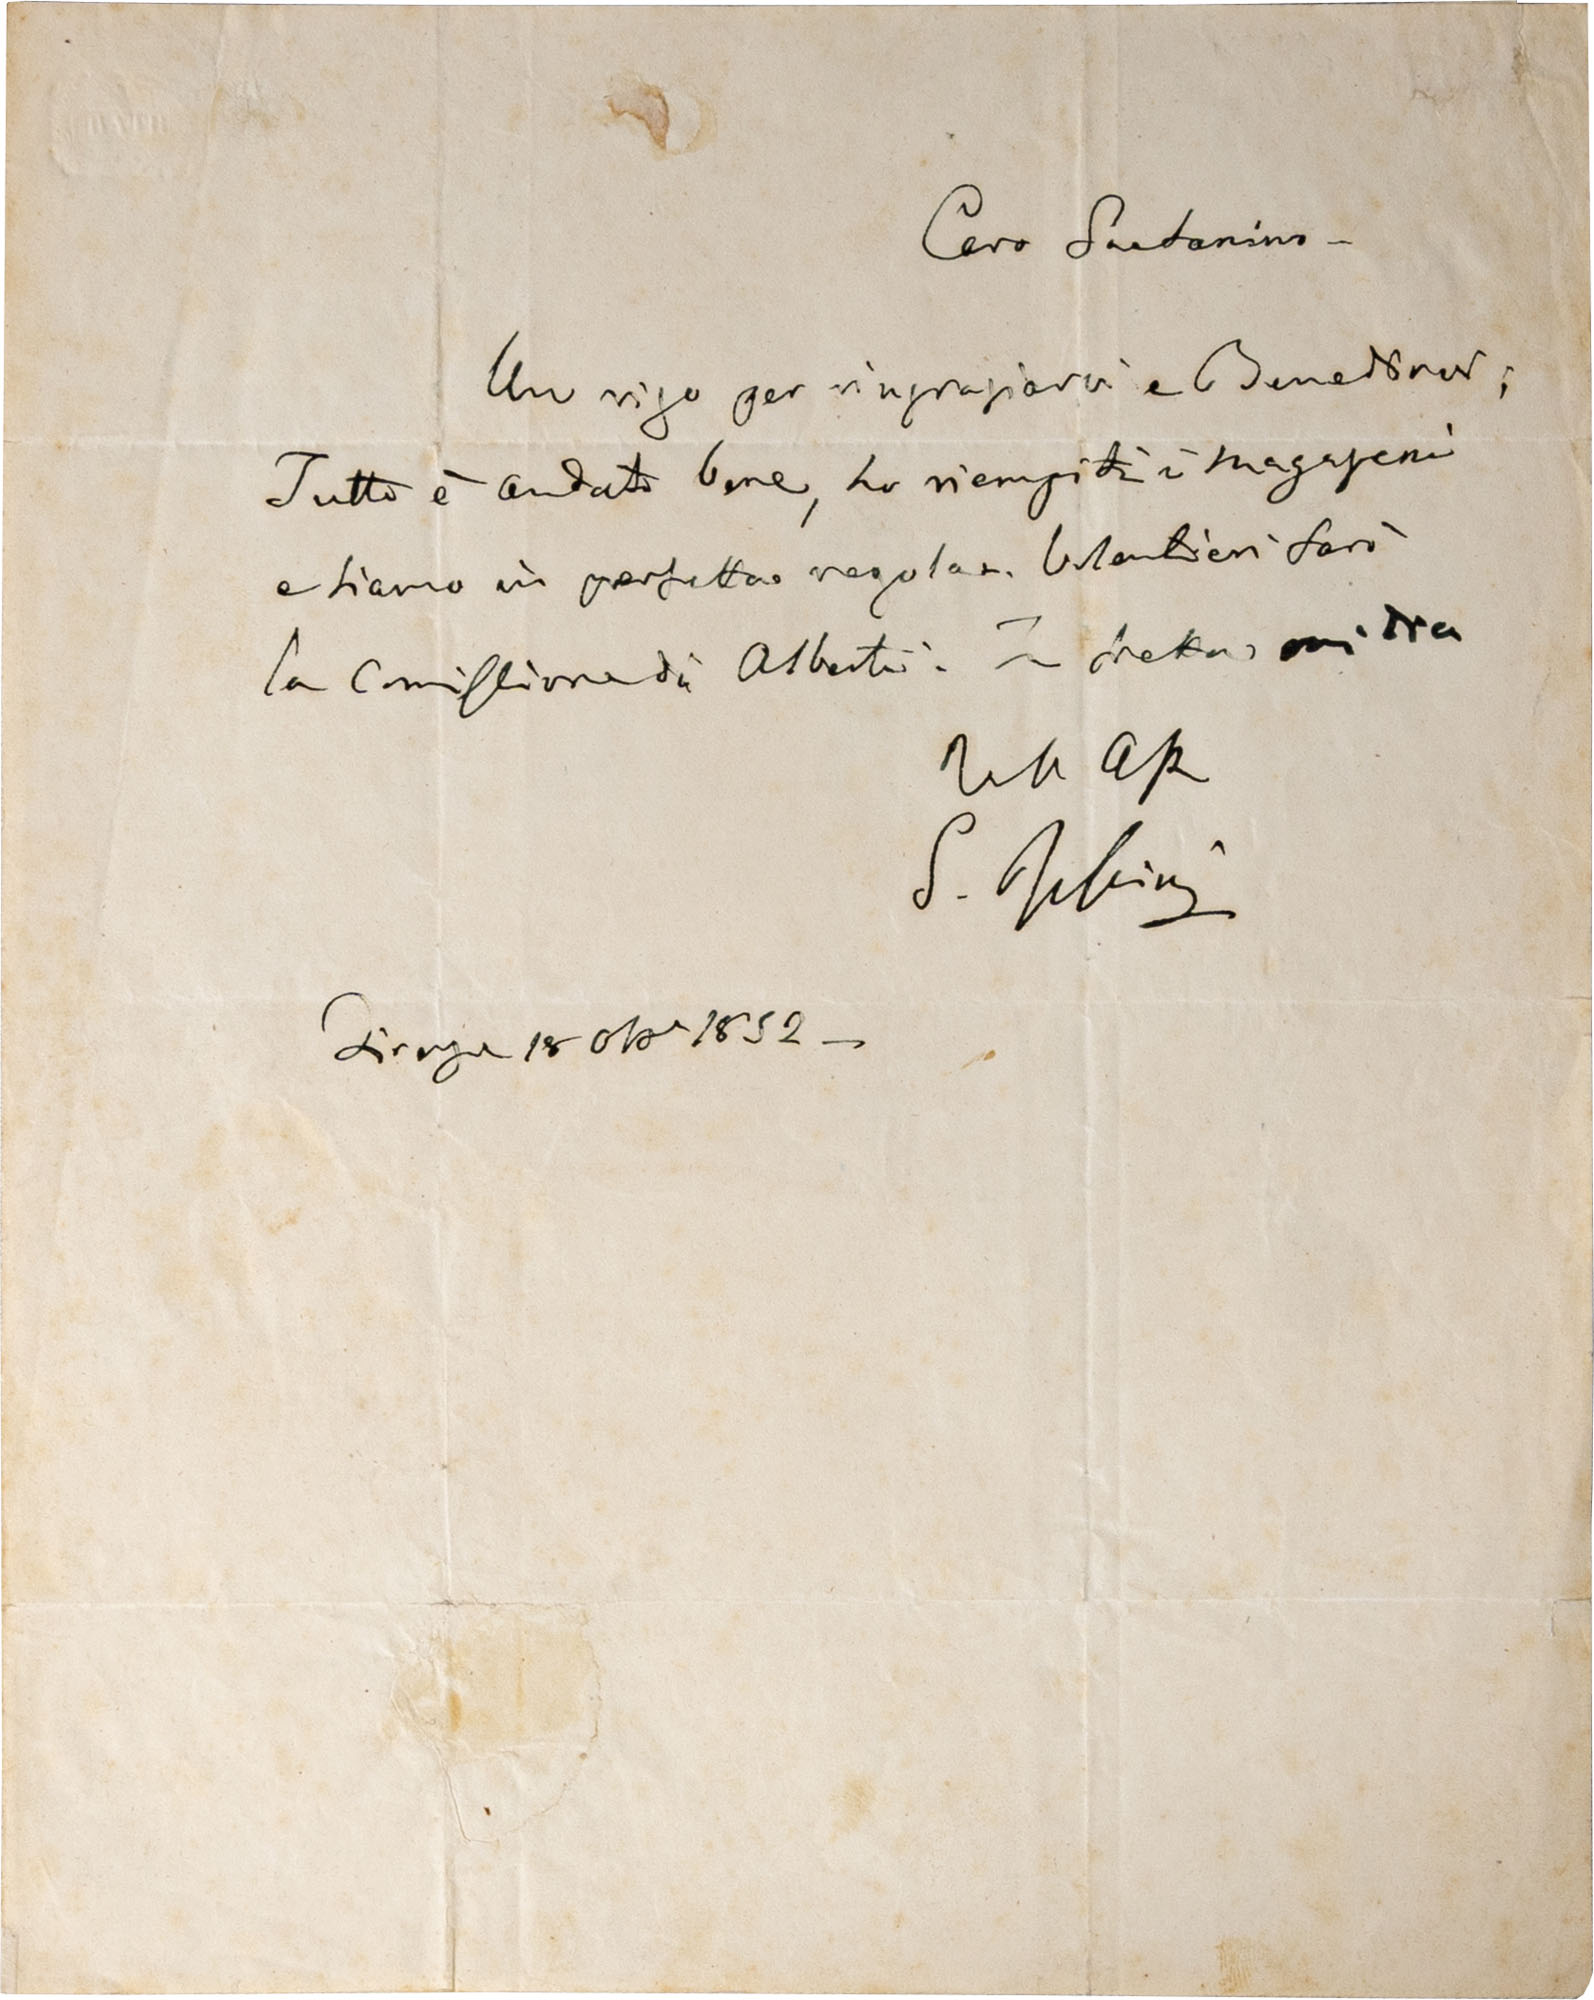 Caro Gaetanino –
Un rigo per ringraziarvi e Benedirvi;
Tutto è andato bene, ho riempiti i magazeni
e siamo in perfetta regola. Volentieri sarò
la Commissione di Alberti. In fretta mi dico
Vostro Aff
G. Rossini
Firenze 18 8bre 1852 –